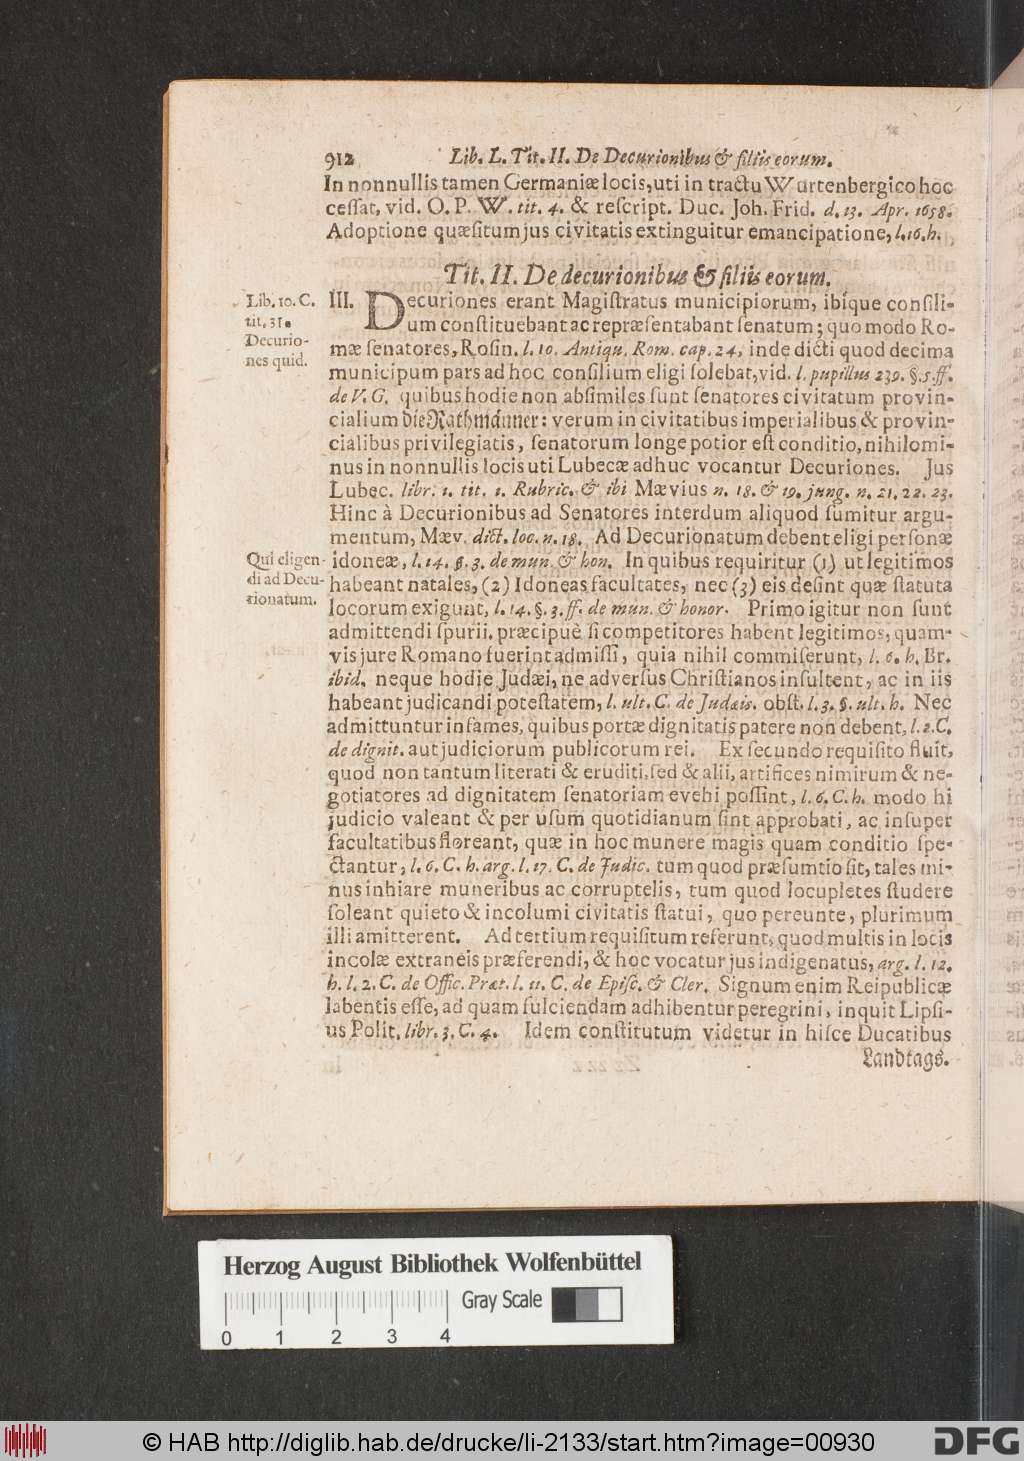 912 Lib. L. Tit. II. De Decurionibus & filiis eorum.
In nonnullis tamen Germaniæ locis, uti in tractu Wurtenbergico hoc
cessat, vid. O. P. W. tit. 4. & rescript. Duc. Joh. Frid. d. 13. Apr. 1658.
Adoptione quæsitum jus civitatis extinguitur emancipatione, l. 16. h.
Tit. II. De decurionibus & filiis eorum.
Lib. 10. C.
tit. 31.
Decurio-
nes quid.
III. Decuriones erant Magistratus municipiorum, ibique consili-
um constituebant ac repræsentabant senatum; quo modo Ro-
mæ senatores, Rosin. l. 10. Antiqu. Rom. cap. 24, inde dicti quod decima
municipum pars ad hoc consilium eligi solebat, vid. l. pupillus 239. §. 5. ff.
de V. G. quibus hodie non absimiles sunt senatores civitatum provin-
cialium die Rathmänner: verum in civitatibus imperialibus & provin-
cialibus privilegiatis, senatorum longe potior est conditio, nihilomi-
nus in nonnullis locis uti Lubecæ adhuc vocantur Decuriones. Jus
Lubec. libr. 1. tit. 1. Rubric. & ibi Mævius n. 18. & 19. jung. n. 21. 22. 23.
Hinc à Decurionibus ad Senatores interdum aliquod sumitur argu-
mentum, Mæv. dict. loc. n. 18. Ad Decurionatum debent eligi personæ
Qui eligen-
di ad Decu-
rionatum.
idoneæ, l. 14. §. 3. de mun. & hon. In quibus requiritur (1) ut legitimos
habeant natales, (2) Idoneas facultates, nec (3) eis desint quæ statuta
locorum exigunt, l. 14. §. 3. ff. de mun. & honor. Primo igitur non sunt
admittendi spurii, præcipuè si competitores habent legitimos, quam-
vis jure Romano fuerint admissi, quia nihil commiserunt, l. 6. h. Br.
ibid. neque hodie Judæi, ne adversus Christianos insultent, ac in iis
habeant judicandi potestatem, l. ult. C. de Judæis. obst. l. 3. §. ult. h. Nec
admittuntur infames, quibus portæ dignitatis patere non debent, l. 2. C.
de dignit. aut judiciorum publicorum rei. Ex secundo requisito fluit,
quod non tantum literati & eruditi, sed & alii, artifices nimirum & ne-
gotiatores ad dignitatem senatoriam evehi possint, l. 6. C. h. modo hi
judicio valeant & per usum quotidianum sint approbati, ac insuper
facultatibus floreant, quæ in hoc munere magis quam conditio spe-
ctantur, l. 6. C. h. arg. l. 17. C. de Judic. tum quod præsumtio sit, tales mi-
nus inhiare muneribus ac corruptelis, tum quod locupletes studere
soleant quieto & incolumi civitatis statui, quo pereunte, plurimum
illi amitterent. Ad tertium requisitum referunt, quod multis in locis
incolæ extraneis præferendi, & hoc vocatur jus indigenatus, arg. l. 12.
h. l. 2. C. de Offic. Præt. l. 11. C. de Episc. & Cler. Signum enim Reipublicæ
labentis esse, ad quam fulciendam adhibentur peregrini, inquit Lipsi-
us Polit. libr. 3. C. 4. Idem constitutum videtur in hisce Ducatibus
Landtags.
Herzog August Bibliothek Wolfenbüttel
Gray Scale
0 1 2 3 4
© HAB http://diglib.hab.de/drucke/li-2133/start.htm?image=00930
DFG